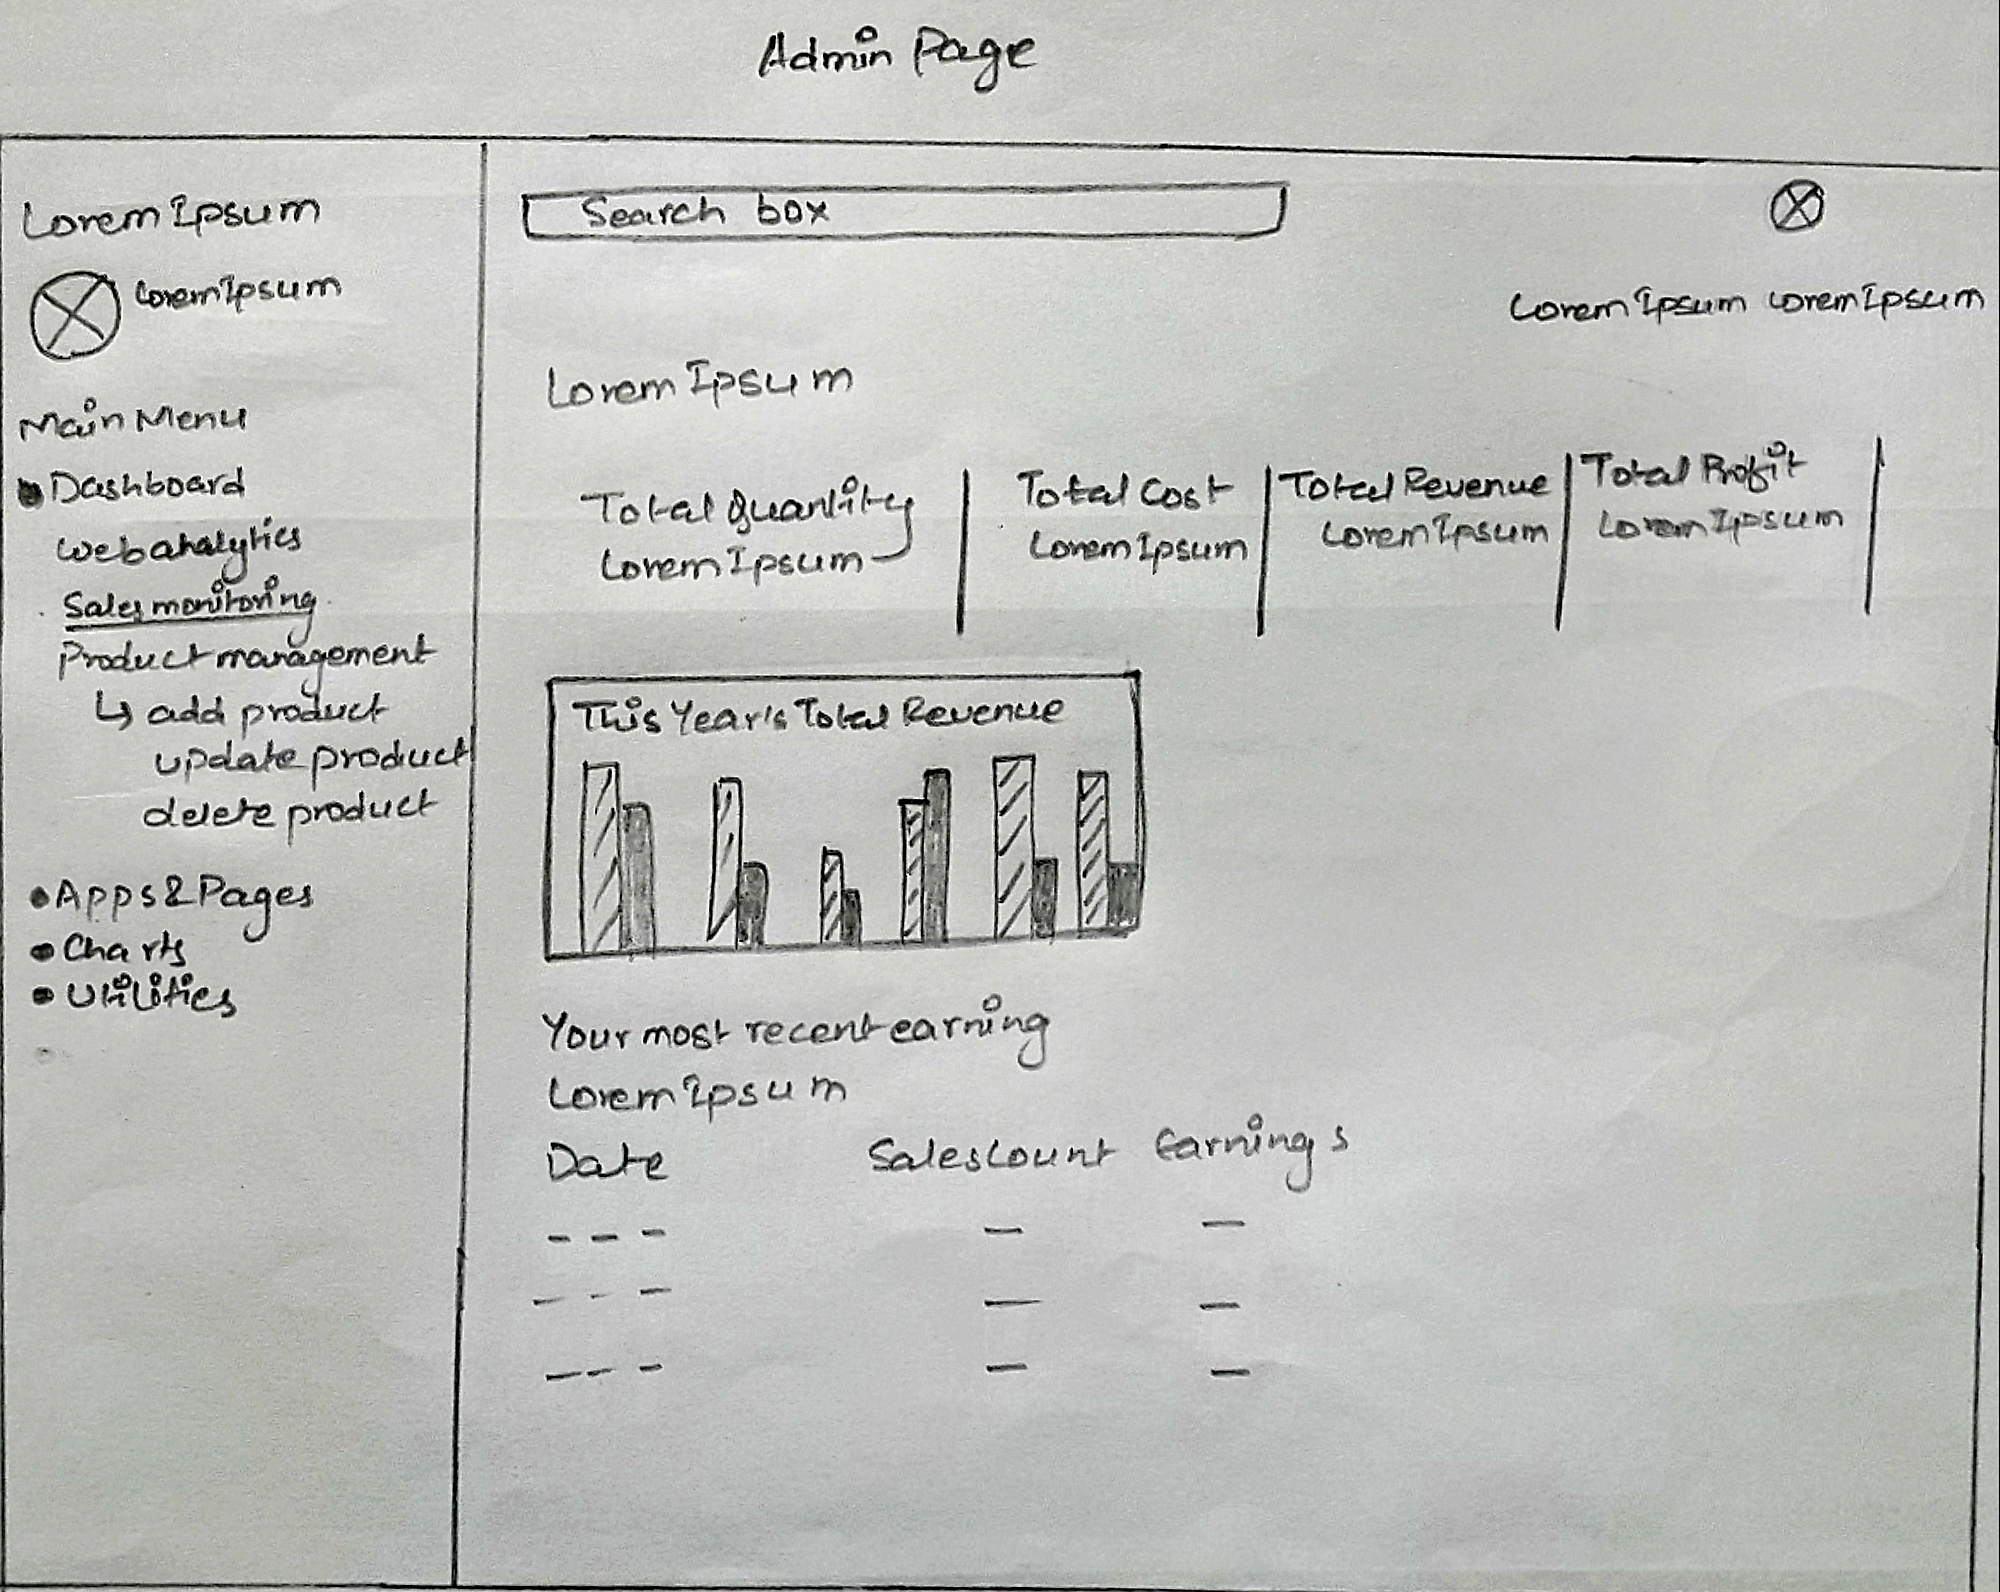 Admin Page
Lorem Ipsum
Lorem Ipsum
Main Menu
Dashboard
Web analytics
Sales monitoring
Product management
↳ add product
update product
delete product
Apps & Pages
Charts
Utilities
Search box
Lorem Ipsum Lorem Ipsum
Lorem Ipsum
Total Quantity
Lorem Ipsum
Total Cost
Lorem Ipsum
Total Revenue
Lorem Ipsum
Total Profit
Lorem Ipsum
This Year's Total Revenue
Your most recent earning
Lorem Ipsum
Date Sales Count Earnings
--- - -
--- - -
--- - -